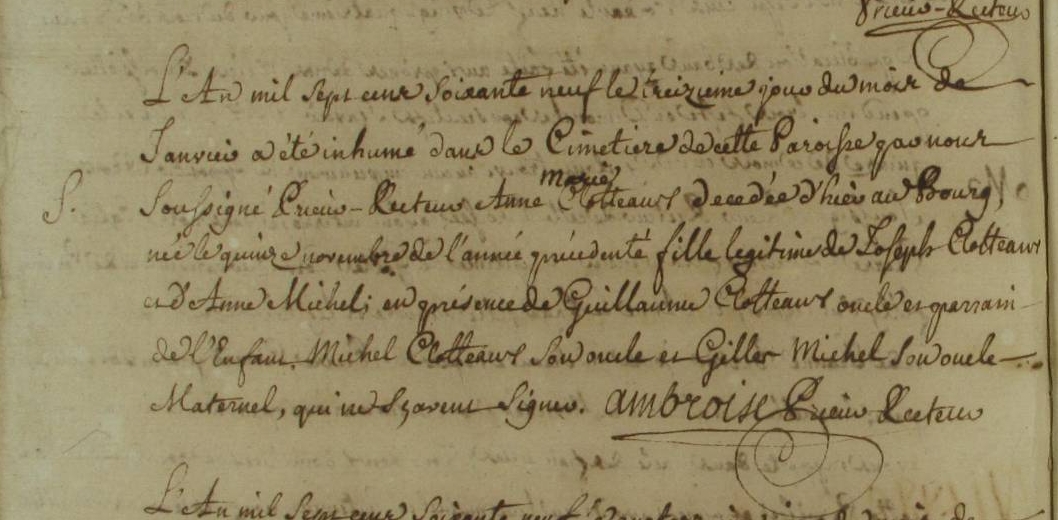 Prieur-Recteur
L'An mil sept cens soixante neuf le treizieme jour du mois de
Janvier a été inhumé dans le Cimetiere de cette Paroisse par nous
S. soussigné Prieur-Recteur Anne marie Clotteaux decedée d'hier au Bourg,
née le quinze novembre de l'année précédente fille legitime de Joseph Clotteaux
et d'Anne Michel; en présence de Guillaume Clotteaux oncle et parrain
de l'Enfant. Michel Clotteaux son oncle et Gilles Michel son oncle
Maternel, qui ne sçavent signer. ambroise Prieur Recteur
L'An mil sept cens soixante neuf